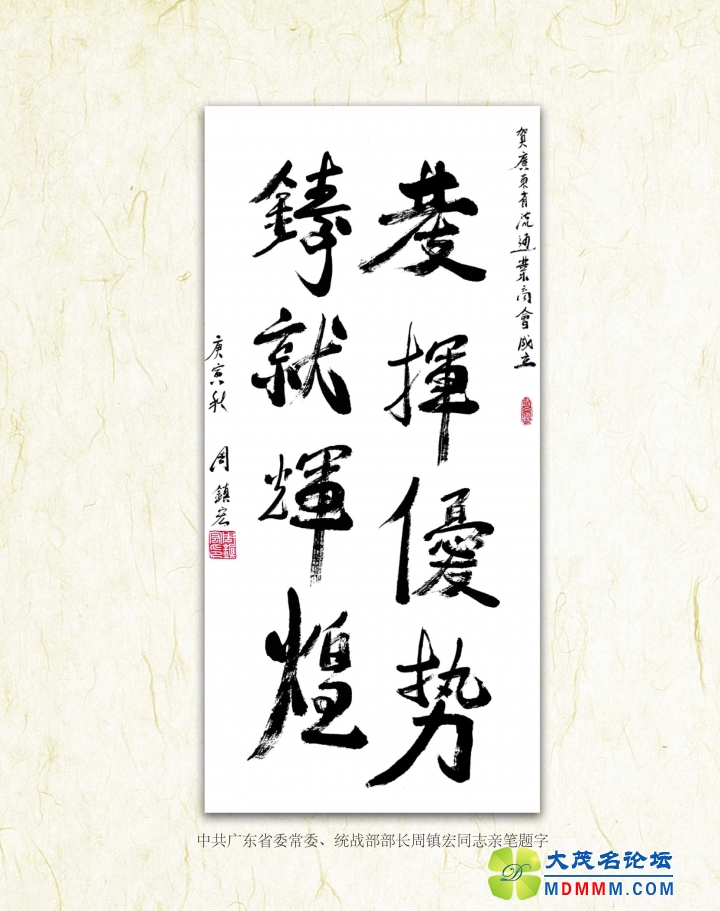 賀廣東省流通業商會成立
發揮優势
鑄就輝煌
庚寅秋 周鎮宏
中共广东省委常委、统战部部长周镇宏同志亲笔题字
大茂名论坛
MDMMM.COM